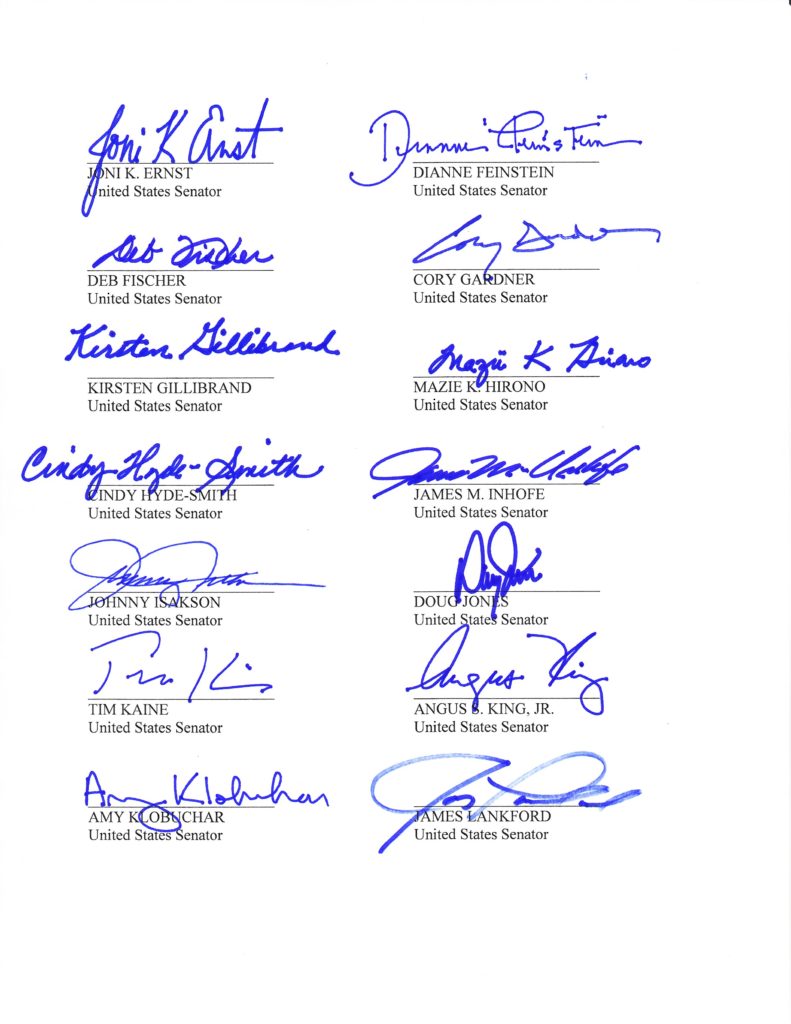 Joni K Ernst
JONI K. ERNST
United States Senator
Dianne Feinstein
DIANNE FEINSTEIN
United States Senator
Deb Fischer
DEB FISCHER
United States Senator
Cory Gardner
CORY GARDNER
United States Senator
Kirsten Gillibrand
KIRSTEN GILLIBRAND
United States Senator
Mazie K Hirono
MAZIE K. HIRONO
United States Senator
Cindy Hyde-Smith
CINDY HYDE-SMITH
United States Senator
James M. Inhofe
JAMES M. INHOFE
United States Senator
JOHNNY ISAKSON
United States Senator
DOUG JONES
United States Senator
Tim
TIM KAINE
United States Senator
Angus King
ANGUS S. KING, JR.
United States Senator
Amy Klobuchar
AMY KLOBUCHAR
United States Senator
JAMES LANKFORD
United States Senator